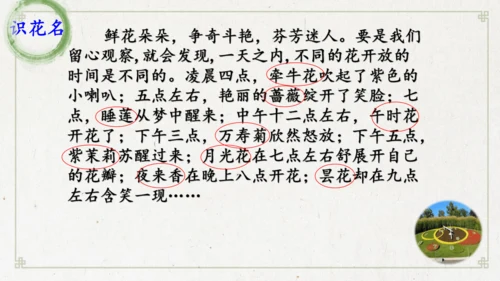 识花名
鲜花朵朵，争奇斗艳，芬芳迷人。要是我们
留心观察,就会发现,一天之内,不同的花开放的
时间是不同的。凌晨四点，牵牛花吹起了紫色的
小喇叭；五点左右，艳丽的蔷薇绽开了笑脸；七
点，睡莲从梦中醒来；中午十二点左右，午时花
开花了；下午三点，万寿菊欣然怒放；下午五点，
紫茉莉苏醒过来；月光花在七点左右舒展开自己
的花瓣；夜来香在晚上八点开花；昙花却在九点
左右含笑一现……